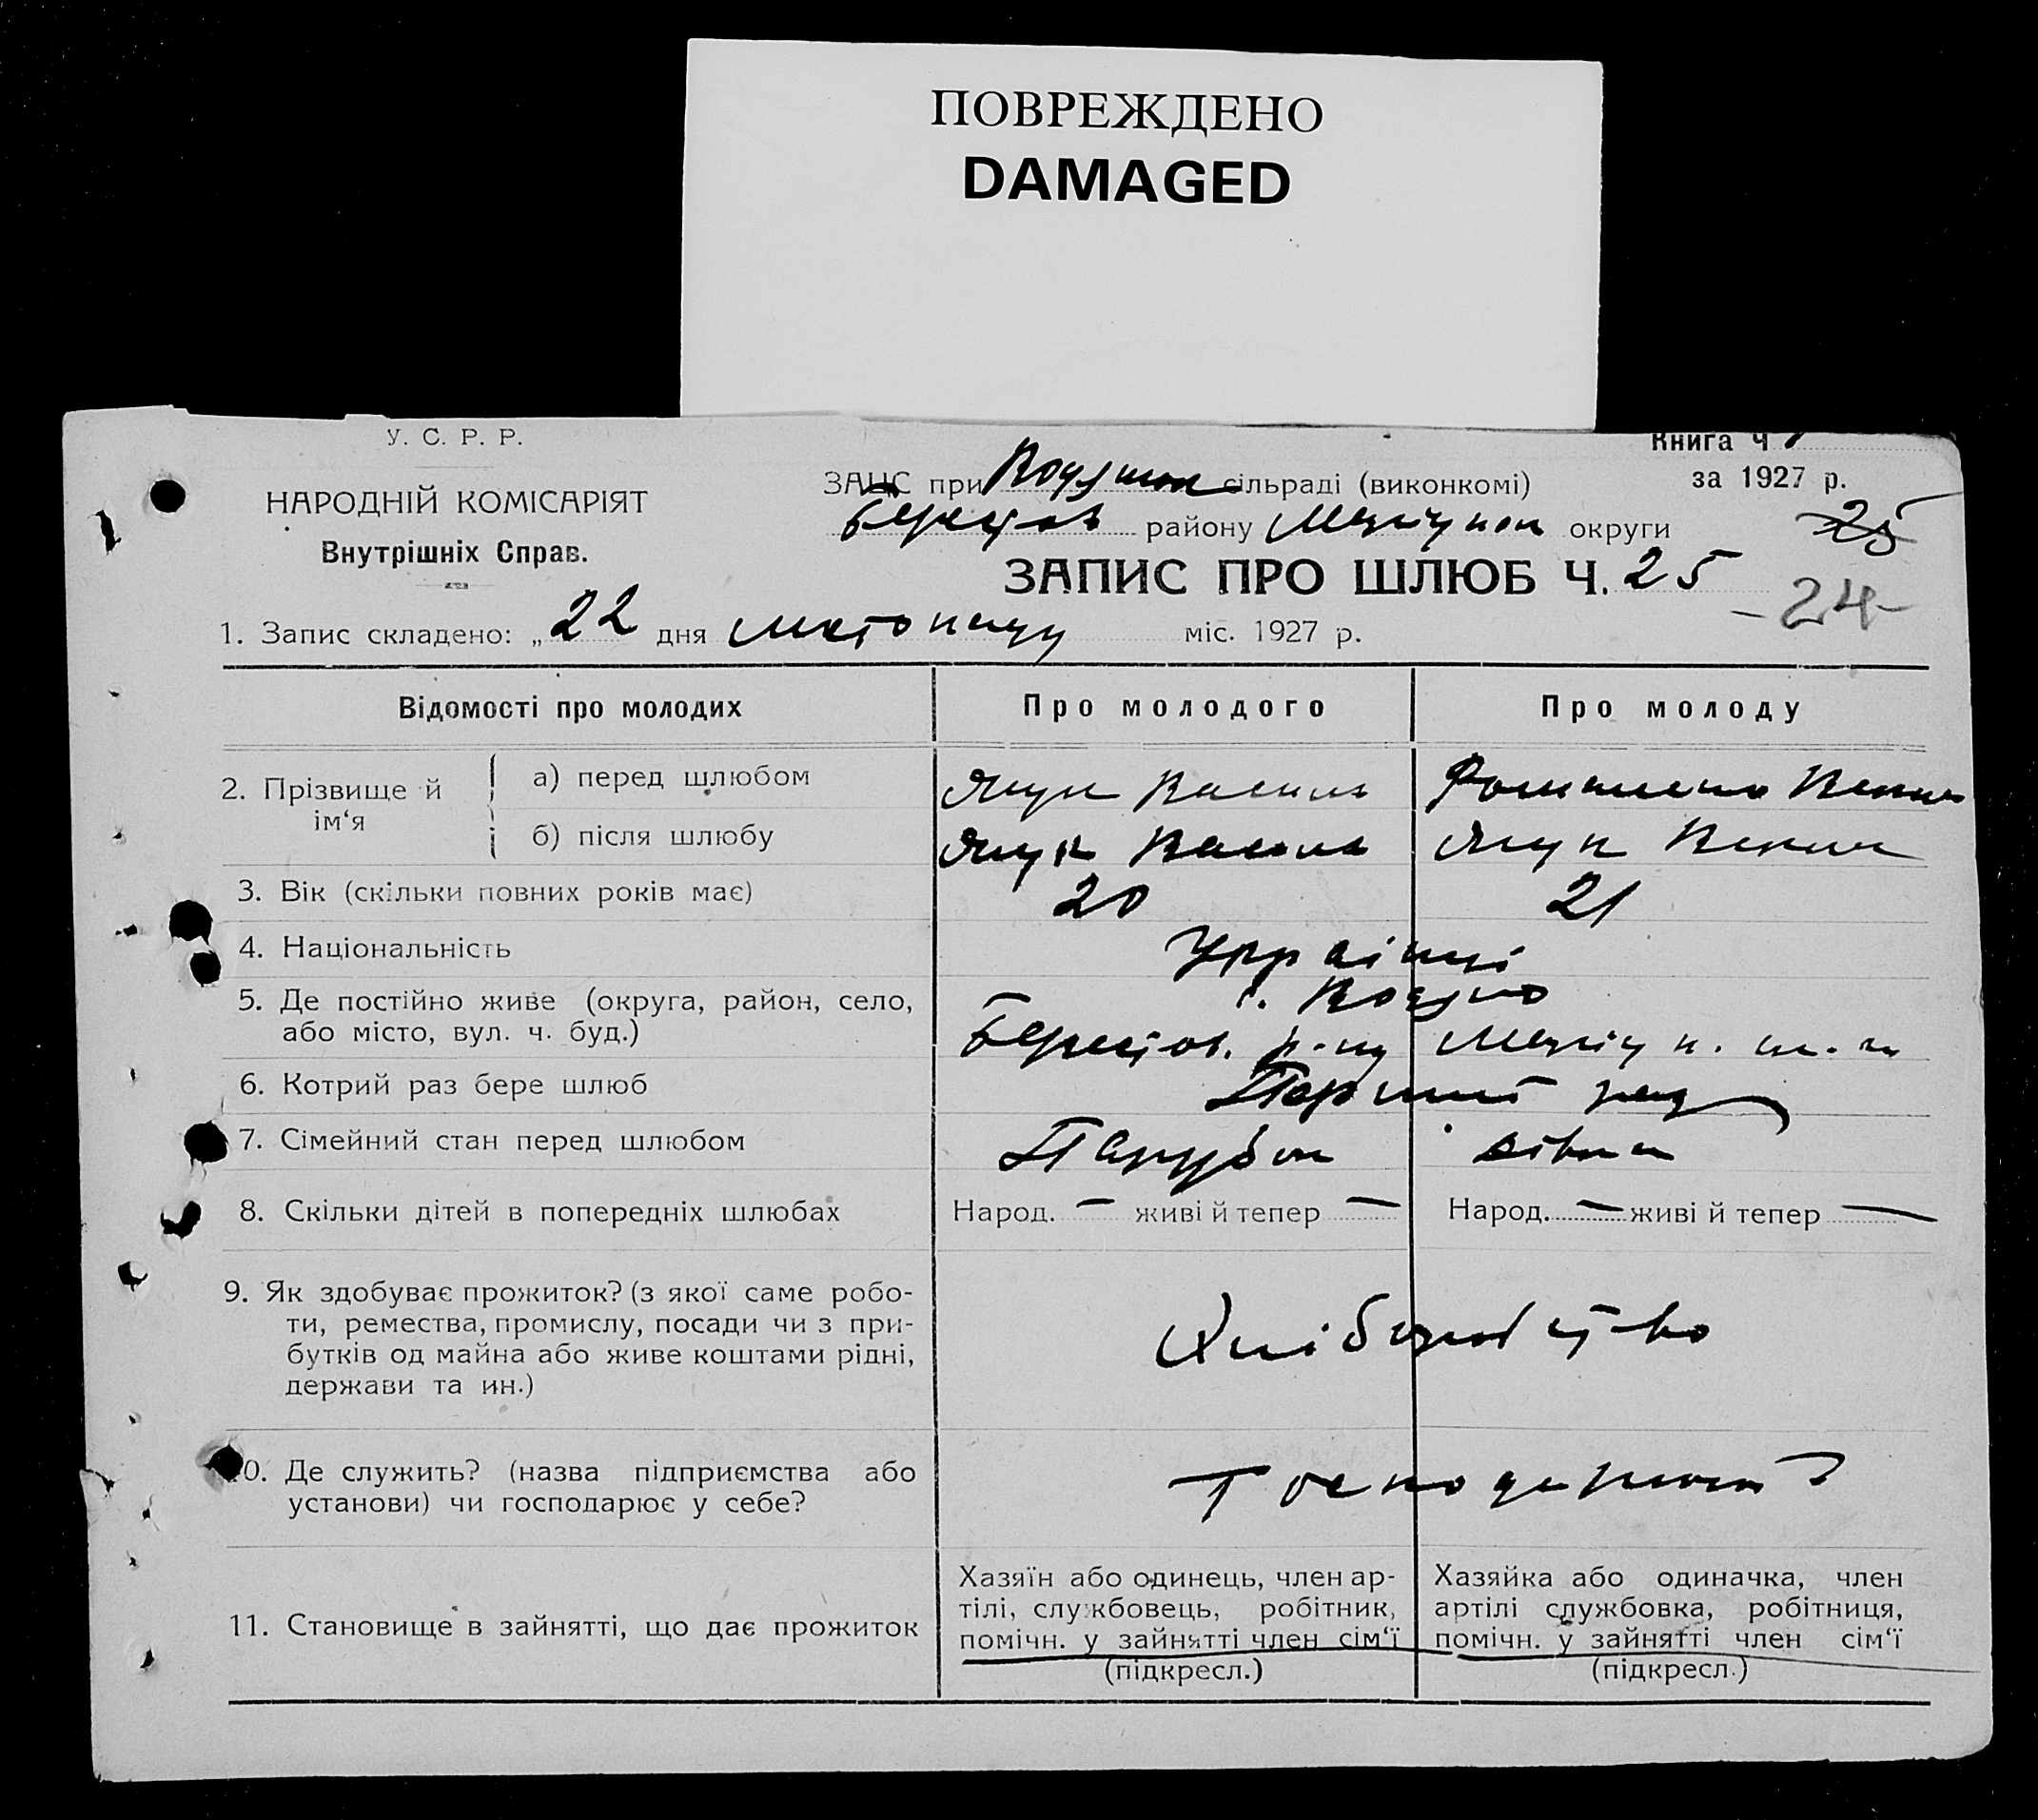 ПОВРЕЖДЕНО
DAMAGED
У. С. Р. Р.
НАРОДНІЙ КОМІСАРІЯТ
Внутрішніх Справ.
Книга ч
за 1927 р.
ЗАЦС при сільраді (виконкомі)
району округи
25
ЗАПИС ПРО ШЛЮБ Ч. 25
-24-
1. Запис складено: „22 дня листопаду міс. 1927 р.
Відомості про молодих Про молодого Про молоду
2. Прізвище й ім‘я
а) перед шлюбом Яцун Василь
б) після шлюбу Яцун Василь Яцун
3. Вік (скільки повних років має) 20 21
4. Національність Українці
5. Де постійно живе (округа, район, село,
або місто, вул. ч. буд.)
6. Котрий раз бере шлюб Перший раз
7. Сімейний стан перед шлюбом Парубок дівка
8. Скільки дітей в попередніх шлюбах Народ. — живі й тепер — Народ. — живі й тепер —
9. Як здобуває прожиток? (з якої саме робо-
ти, ремества, промислу, посади чи з при-
бутків од майна або живе коштами рідні,
держави та ин.)
Хліборобство
10. Де служить? (назва підприємства або
установи) чи господарює у себе?
11. Становище в зайнятті, що дає прожиток
Хазяїн або одинець, член ар-
тілі, службовець, робітник,
помічн. у зайнятті член сім‘ї
(підкресл.)
Хазяйка або одиначка, член
артілі службовка, робітниця,
помічн. у зайнятті член сім‘ї
(підкресл.)